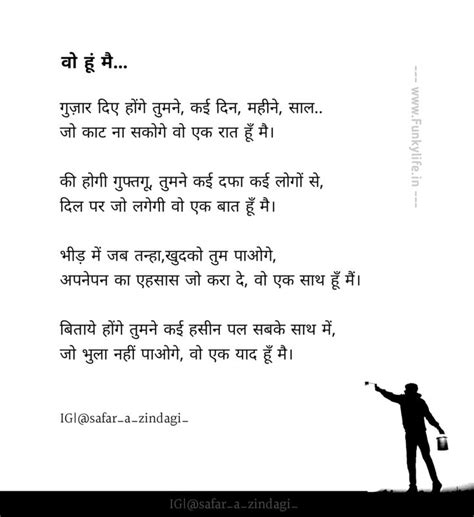 वो हूं मै...
गुज़ार दिए होंगे तुमने, कई दिन, महीने, साल..
जो काट ना सकोगे वो एक रात हूँ मै।
की होगी गुफ्तगू, तुमने कई दफा कई लोगों से,
दिल पर जो लगेगी वो एक बात हूँ मै।
भीड़ में जब तन्हा,खुदको तुम पाओगे,
अपनेपन का एहसास जो करा दे, वो एक साथ हूँ मैं।
बिताये होंगे तुमने कई हसीन पल सबके साथ में,
जो भुला नहीं पाओगे, वो एक याद हूँ मै।
IG|@safar_a_zindagi_
--- www.Funkylife.in ---
IG|@safar_a_zindagi_